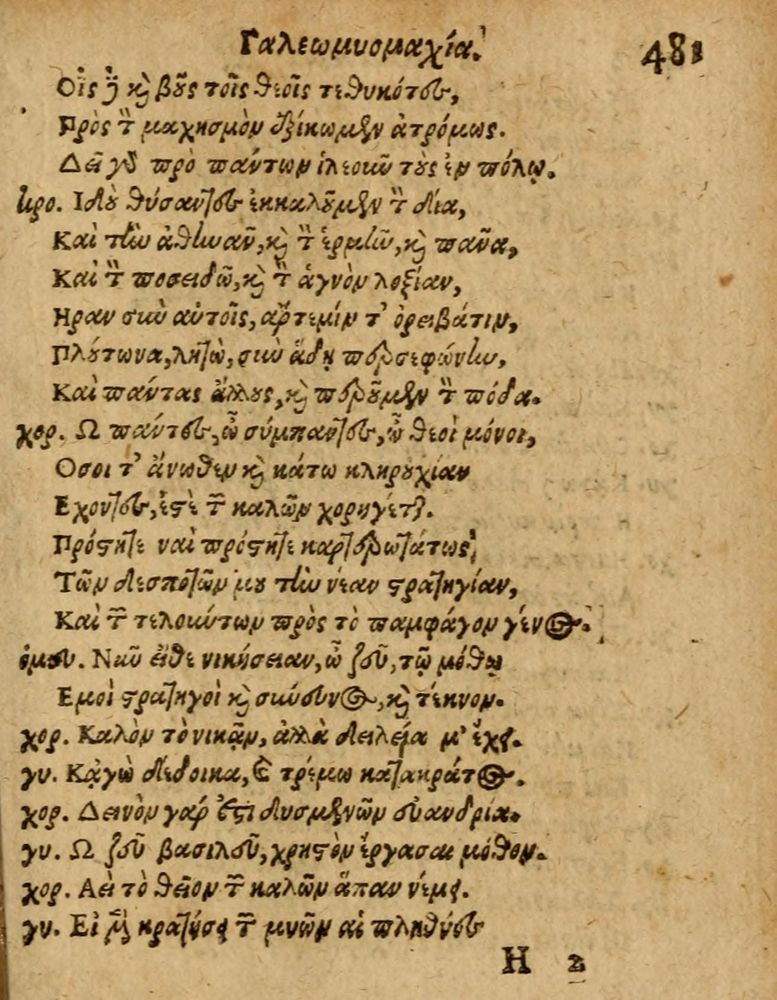 Γαλεωμυομαχία. 481
Οἷς ἢ καὶ βοῦς τοῖς θεοῖς τεθυκότες,
Πρὸς τὸν μαχησμὸν ἐξίκωμεν ἀτρόμως.
Δεῖ γὰρ πρὸ πάντων ἱλεοῦν τοὺς ἐν πόλῳ.
κρο. Ιδοὺ θύσαντες ἐκκαλοῦμεν τὸν δία,
Καὶ τὴν ἀθηνᾶν, καὶ τὸν ἑρμῆν, καὶ πᾶνα,
Καὶ τὸν ποσειδῶ, καὶ τὸν ἁγνὸν λοξίαν,
Ηραν σὺν αὐτοῖς, ἄρτεμίν τ' ὀρειβάτιν,
Πλούτωνα, λητὼ, σὺν ἅδῃ περσεφώνην,
Καὶ πάντας ἄλλους, καὶ περοῦμεν τὸν πόδα.
χορ. Ω πάντες, ὦ σύμπαντες, ὦ θεοὶ μόνοι,
Οσοι τ' ἄνωθεν καὶ κάτω κληρουχίαν
Εχοντες, ἐστὲ τῶν καλῶν χορηγέται.
Πρόστητε ναὶ πρόστητε καρτερωτάτως,
Τῶν δεσποτῶν μου τὴν νέαν στρατηγίαν,
Καὶ τῶν τελούντων πρὸς τὸ παμφάγον γένος.
ὁμου. Ναῦ εἴθε νικήσειαν, ὦ ζεῦ, τῷ μόθῳ
Εμοὶ στρατηγοὶ καὶ σύνευνος, καὶ τέκνον.
χορ. Καλὸν τὸ νικᾷν, ἀλλὰ δειλεία μ' ἔχει.
γυ. Κᾀγὼ δέδοικα, καὶ τρέμω κατακράτος.
χορ. Δεινὸν γάρ ἐστι δυσμενῶν εὐανδρία.
γυ. Ω ζεῦ βασιλεῦ, χρηστὸν ἔργασαι μόθον.
χορ. Αεὶ τὸ θεῖον τῶν καλῶν ἅπαν νέμει.
γυ. Εἰ μὴ κρατήσει τῶν μυῶν αἱ πληθύες
H 2